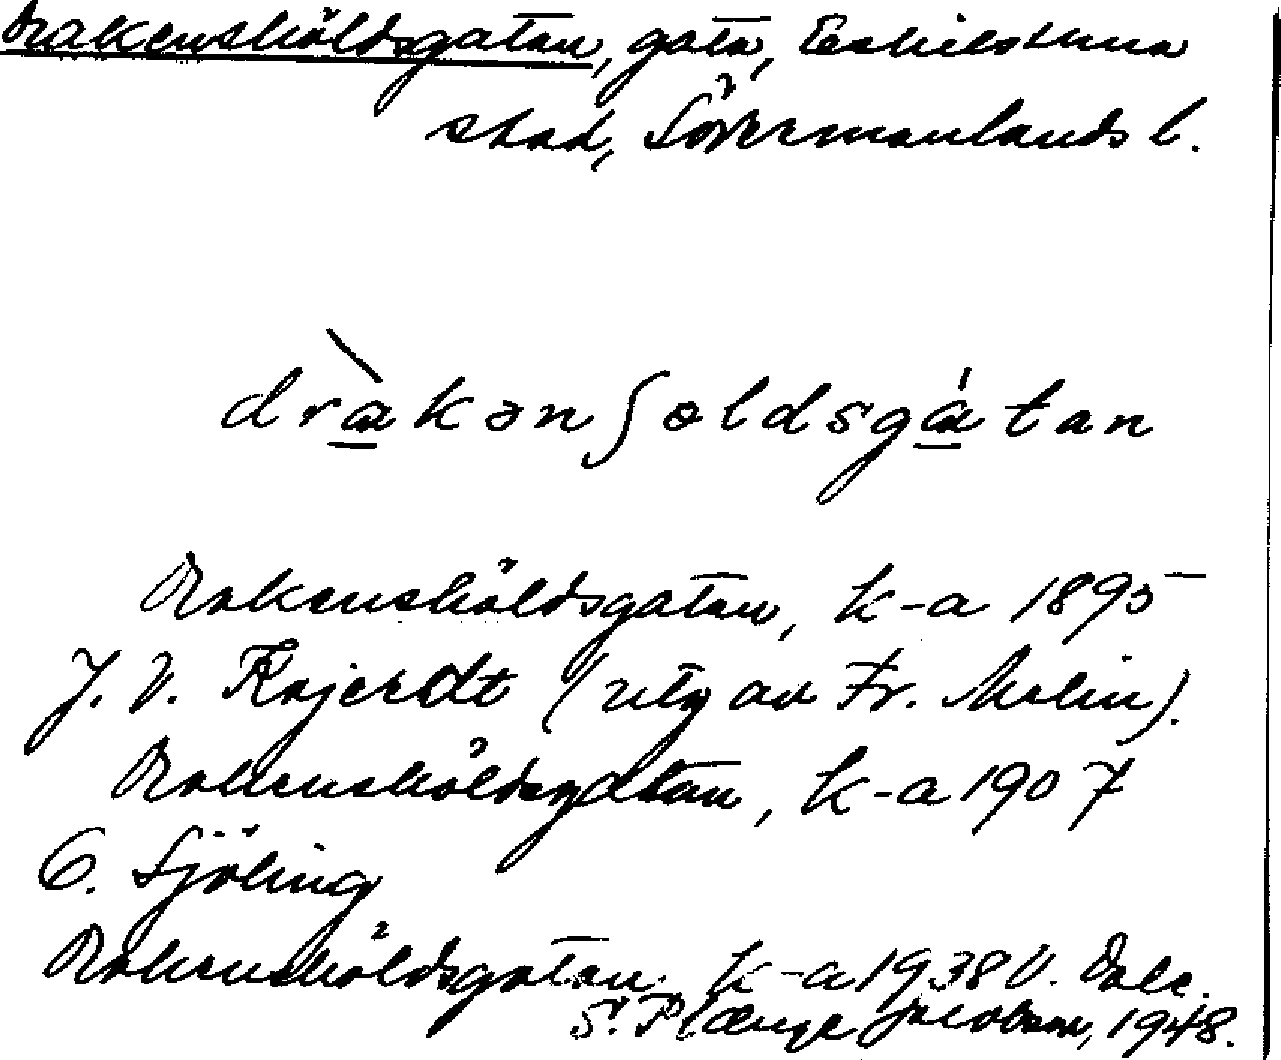 Drakensköldsgatan, gata, Eskilstuna
stad, Södermanlands l.
dràkənʃöldsgátan
Drakensköldsgatan, k-a 1895
J. V. (utg av Fr. Molin).
Drakensköldsgatan, k-a 1907
C. Sjöling
Drakensköldsgatan k-a 1938 V. Dale.
S. Plænge Jacobson, 1948.